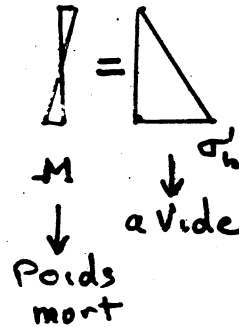 =
σh
M
a Vide
Poids
mort